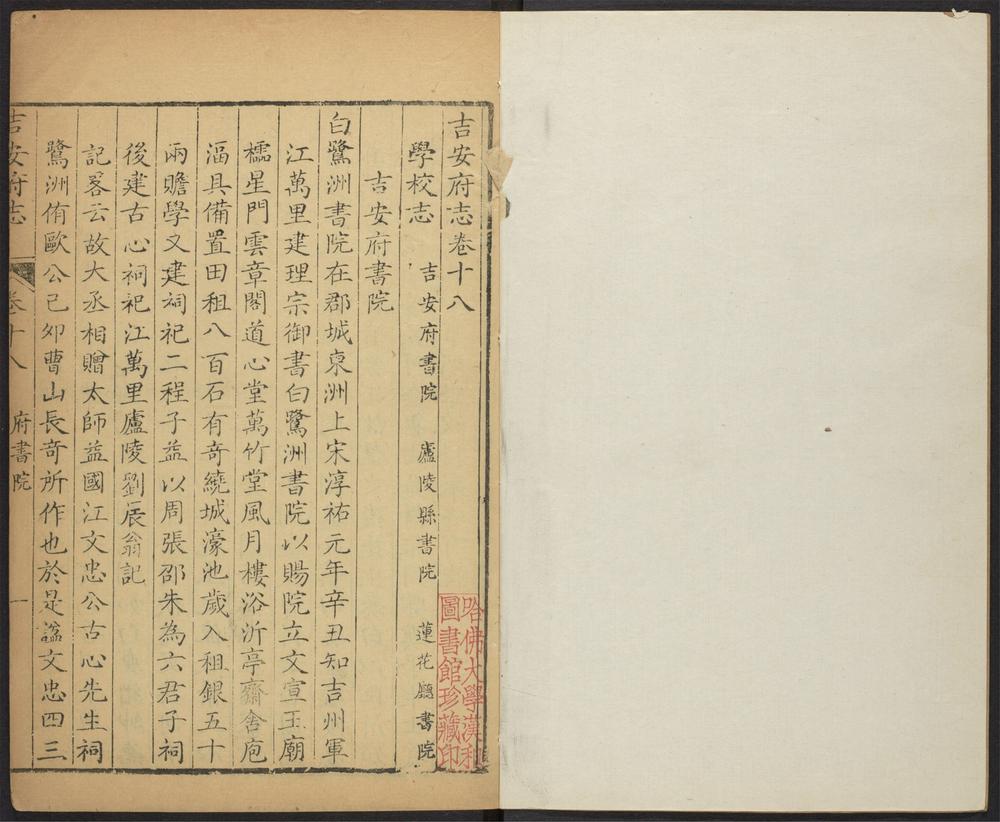 吉安府志卷十八
學校志 吉安府書院 廬陵縣書院 蓮花廳書院
吉安府書院
白鷺洲書院在郡城東洲上宋淳祐元年辛丑知吉州軍
江萬里建理宗御書白鷺洲書院以賜院立文宣王廟
櫺星門雲章閣道心堂萬竹堂風月樓浴沂亭齋舍庖
湢具備置田租八百石有奇繞城濠池歲入租銀五十
兩贍學又建祠祀二程子益以周張邵朱為六君子祠
後建古心祠祀江萬里廬陵劉辰翁記
記畧云故大丞相贈太師益國江文忠公古心先生祠
鷺洲侑歐公己夘曹山長奇所作也於是諡文忠四三
吉安府志 卷十八 府書院 一
哈佛大學漢和
圖書館珍藏印